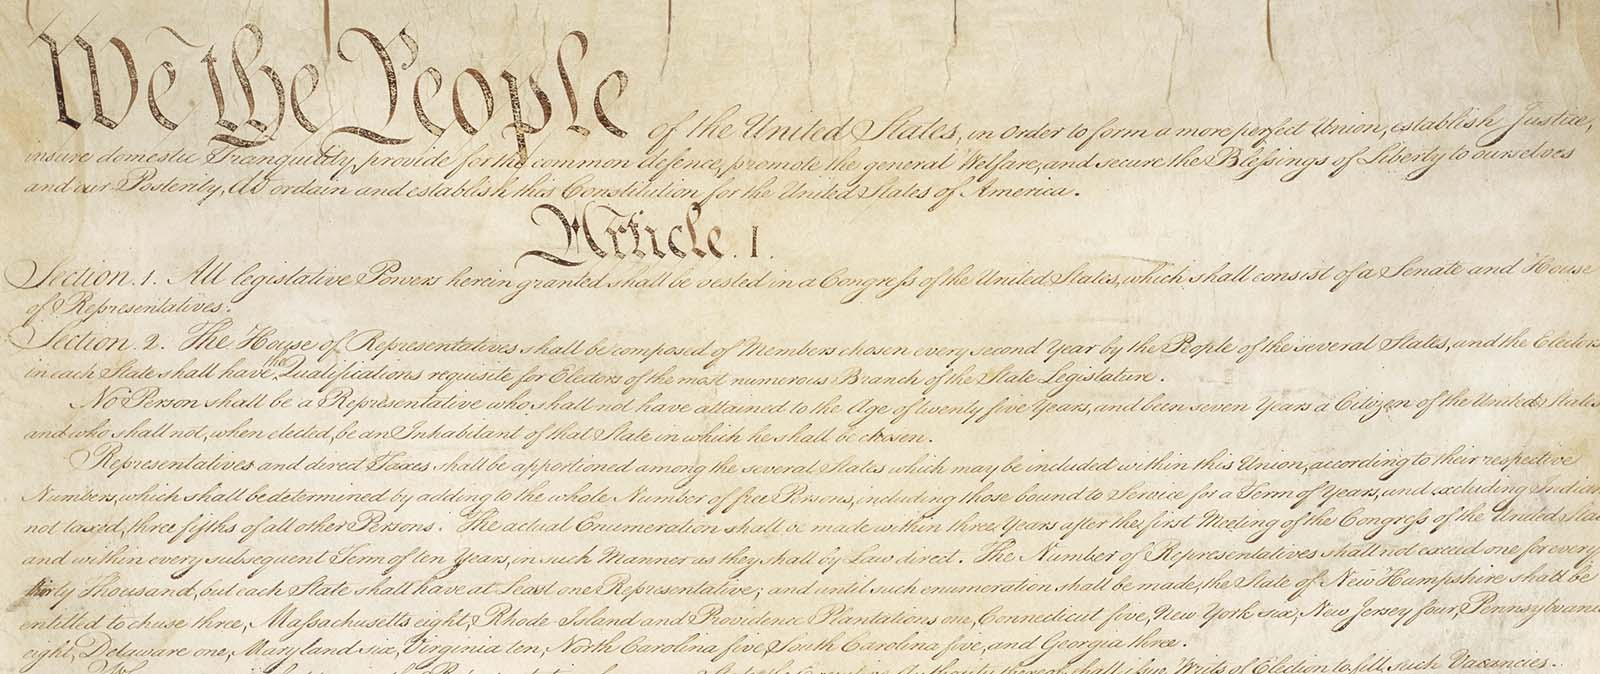 We the People of the United States, in Order to form a more perfect Union, establish Justice,
insure domestic Tranquility, provide for the common defence, promote the general Welfare, and secure the Blessings of Liberty to ourselves
and our Posterity, do ordain and establish this Constitution for the United States of America.
Article. I.
Section. 1. All legislative Powers herein granted shall be vested in a Congress of the United States, which shall consist of a Senate and House
of Representatives.
Section. 2. The House of Representatives shall be composed of Members chosen every second Year by the People of the several States, and the Electors
in each State shall have the Qualifications requisite for Electors of the most numerous Branch of the State Legislature.
No Person shall be a Representative who shall not have attained to the Age of twenty five Years, and been seven Years a Citizen of the United States,
and who shall not, when elected, be an Inhabitant of that State in which he shall be chosen.
Representatives and direct Taxes shall be apportioned among the several States which may be included within this Union, according to their respective
Numbers, which shall be determined by adding to the whole Number of free Persons, including those bound to Service for a Term of Years, and excluding Indian
not taxed, three fifths of all other Persons. The actual Enumeration shall be made within three Years after the first Meeting of the Congress of the United Sta
and within every subsequent Term of ten Years, in such Manner as they shall by Law direct. The Number of Representatives shall not exceed one for every
thirty Thousand, but each State shall have at Least one Representative; and until such enumeration shall be made, the State of New Hampshire shall be
entitled to chuse three, Massachusetts eight, Rhode-Island and Providence Plantations one, Connecticut five, New York six, New Jersey four, Pennsylvani
eight, Delaware one, Maryland six, Virginia ten, North Carolina five, South Carolina five, and Georgia three.
Authority thereof shall issue Writs of Election to fill such Vacancies.